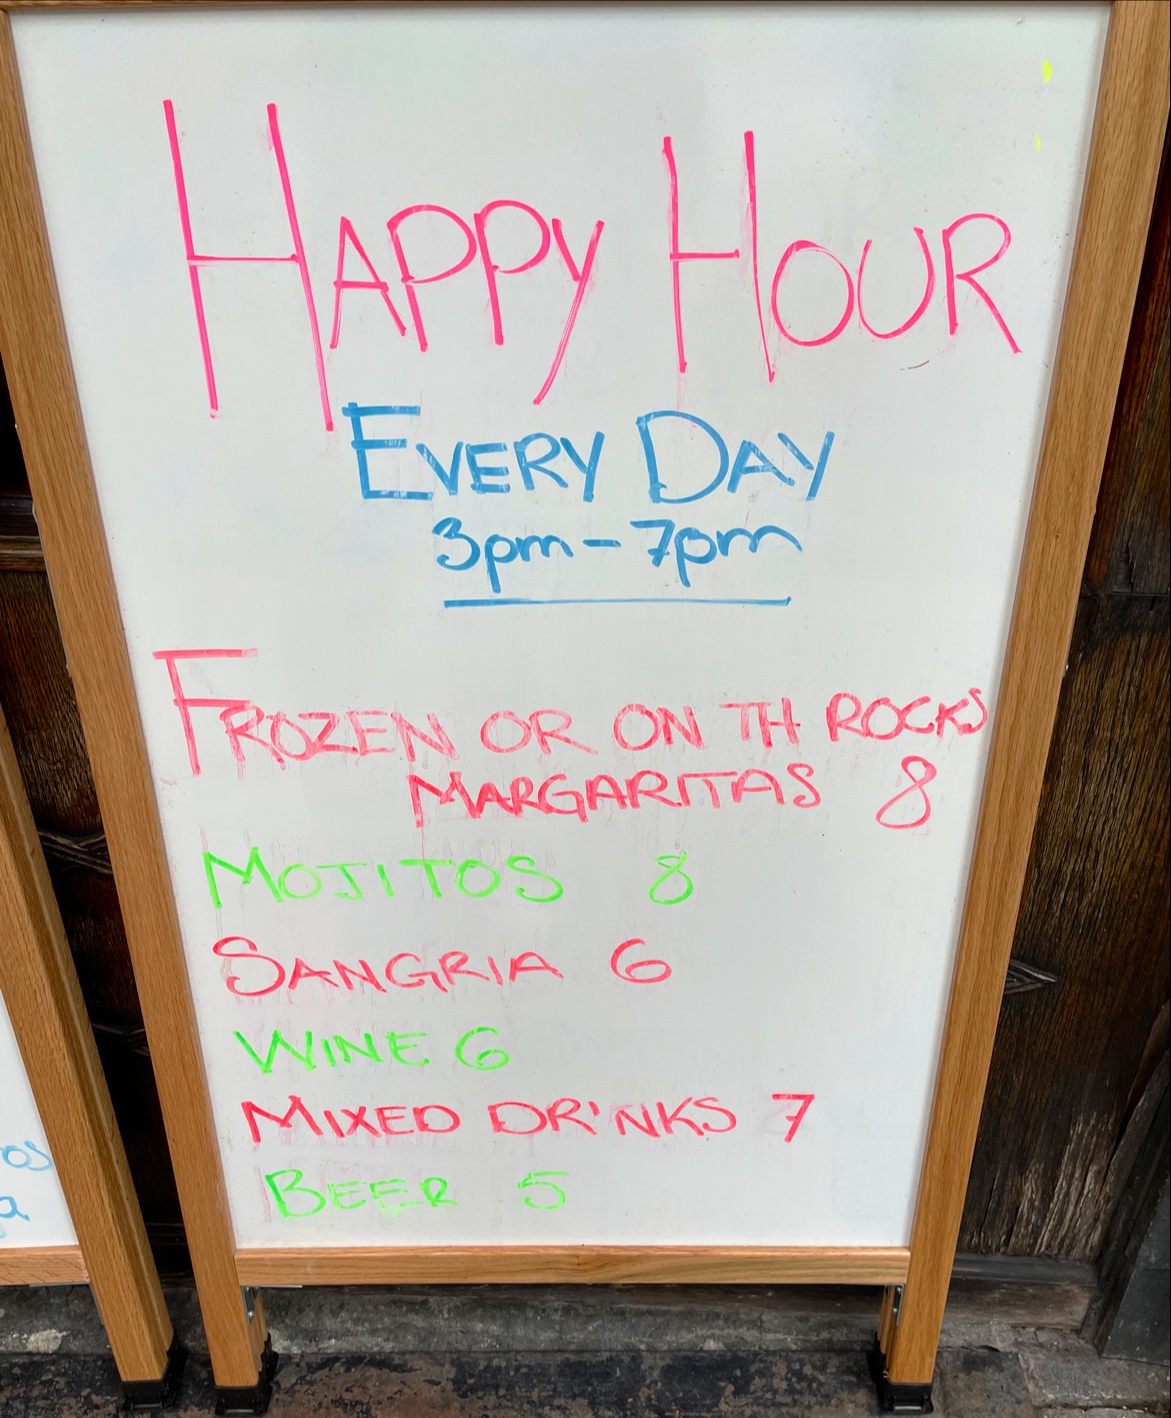 HAPPY HOUR
EVERY DAY
3pm - 7pm
FROZEN OR ON TH ROCKS
MARGARITAS 8
MOJITOS 8
SANGRIA 6
WINE 6
MIXED DRINKS 7
BEER 5
os
a